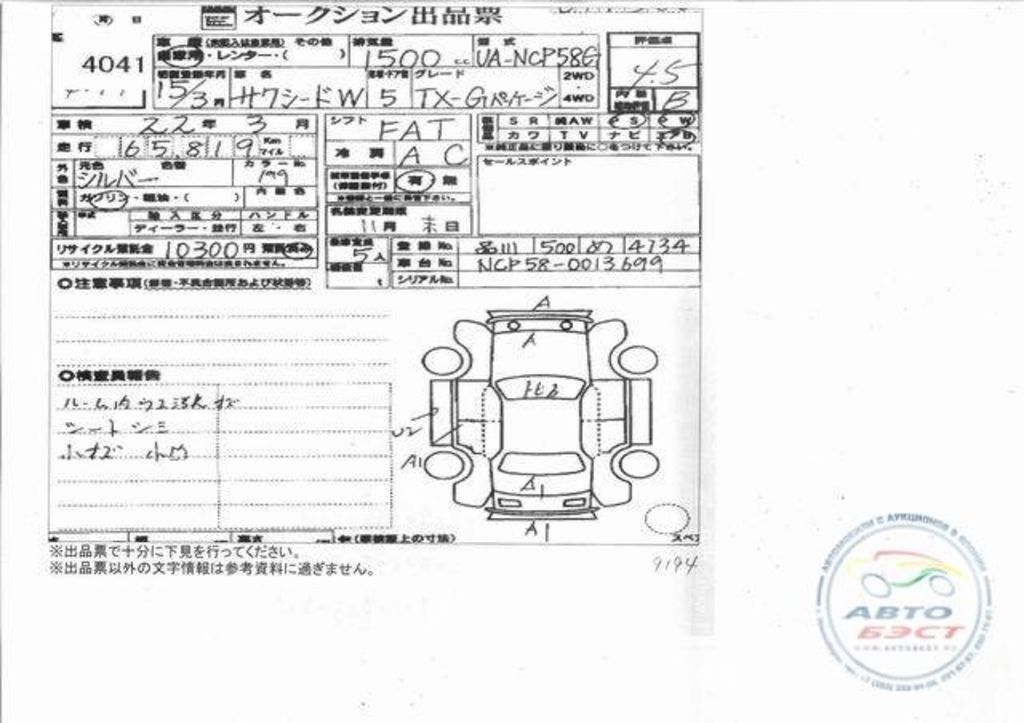 月 日
オークション出品票
4041
車歴 その他
自家用・レンター・( )
排気量
1500 cc
型式
UA-NCP58G
評価点
4.5
内装
B
初度登録年月
15/3月
車名
サクシードW
ドア数
5
グレード
TX-Gパッケージ
2WD
4WD
車検 22年 3月
走行 65,819 Km マイル
外色
元色 シルバー
色替
カラーNo. 199
燃料 ガソリン・軽油・( )
内装色
輸入区分
ハンドル
ディーラー・並行
左・右
リサイクル預託金 10300円 預託済み
シフト FAT
冷房 AC
有 無
名義変更期限
11月 末日
乗車定員
5人
SR 純AW PS PW
カワ TV ナビ エアB
セールスポイント
登録No. 品川 500 め 4734
車台No. NCP58-0013699
シリアルNo.
○注意事項
○検査員報告
シート シミ
小キズ 小凹
A
A
U2
A1
A1
A1
※出品票で十分に下見を行ってください。
※出品票以外の文字情報は参考資料に過ぎません。
スペ
9194
АВТОМОБИЛИ С АУКЦИОНОВ В ЯПОНИИ
АВТО
БЭСТ